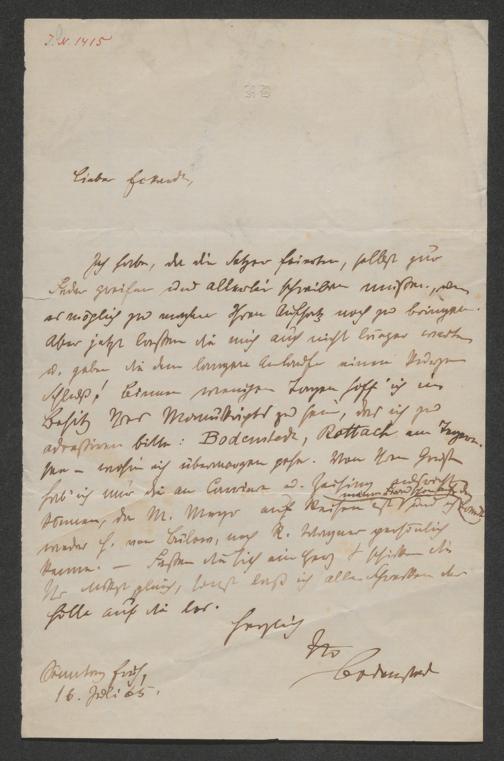 J.N. 1415
Lieber Eckardt,
Ich habe, da die Setzer feierten, selbst zur
Feder greifen und allerlei schreiben müssen, um
es möglich zu machen Ihren Aufsatz noch zu bringen.
Aber jetzt lassen Sie mich auch nicht länger warten
u. geben Sie dem langen Anlaufe einen kurzen
Schluß! Binnen wenigen Tagen hoff' ich im
Besitz des Manuskripts zu sein, das ich zu
adressiren bitte: Bodenstedt, Rottach am Tegern-
see – wohin ich übermorgen gehe. Von Ihren
hab' ich nur die an Carriere u.
können, da M. Meyr auf Reisen ist und ich
weder H. von Bülow, noch R. Wagner persönlich
kenne. – Fassen Sie sich ein Herz & schicken Sie
gleich, sonst laß ich alle Schrecken der
Hölle auf Sie los.
Herzlich
Ihr
Bodenstedt
Sonntag früh,
16. Juli 65.